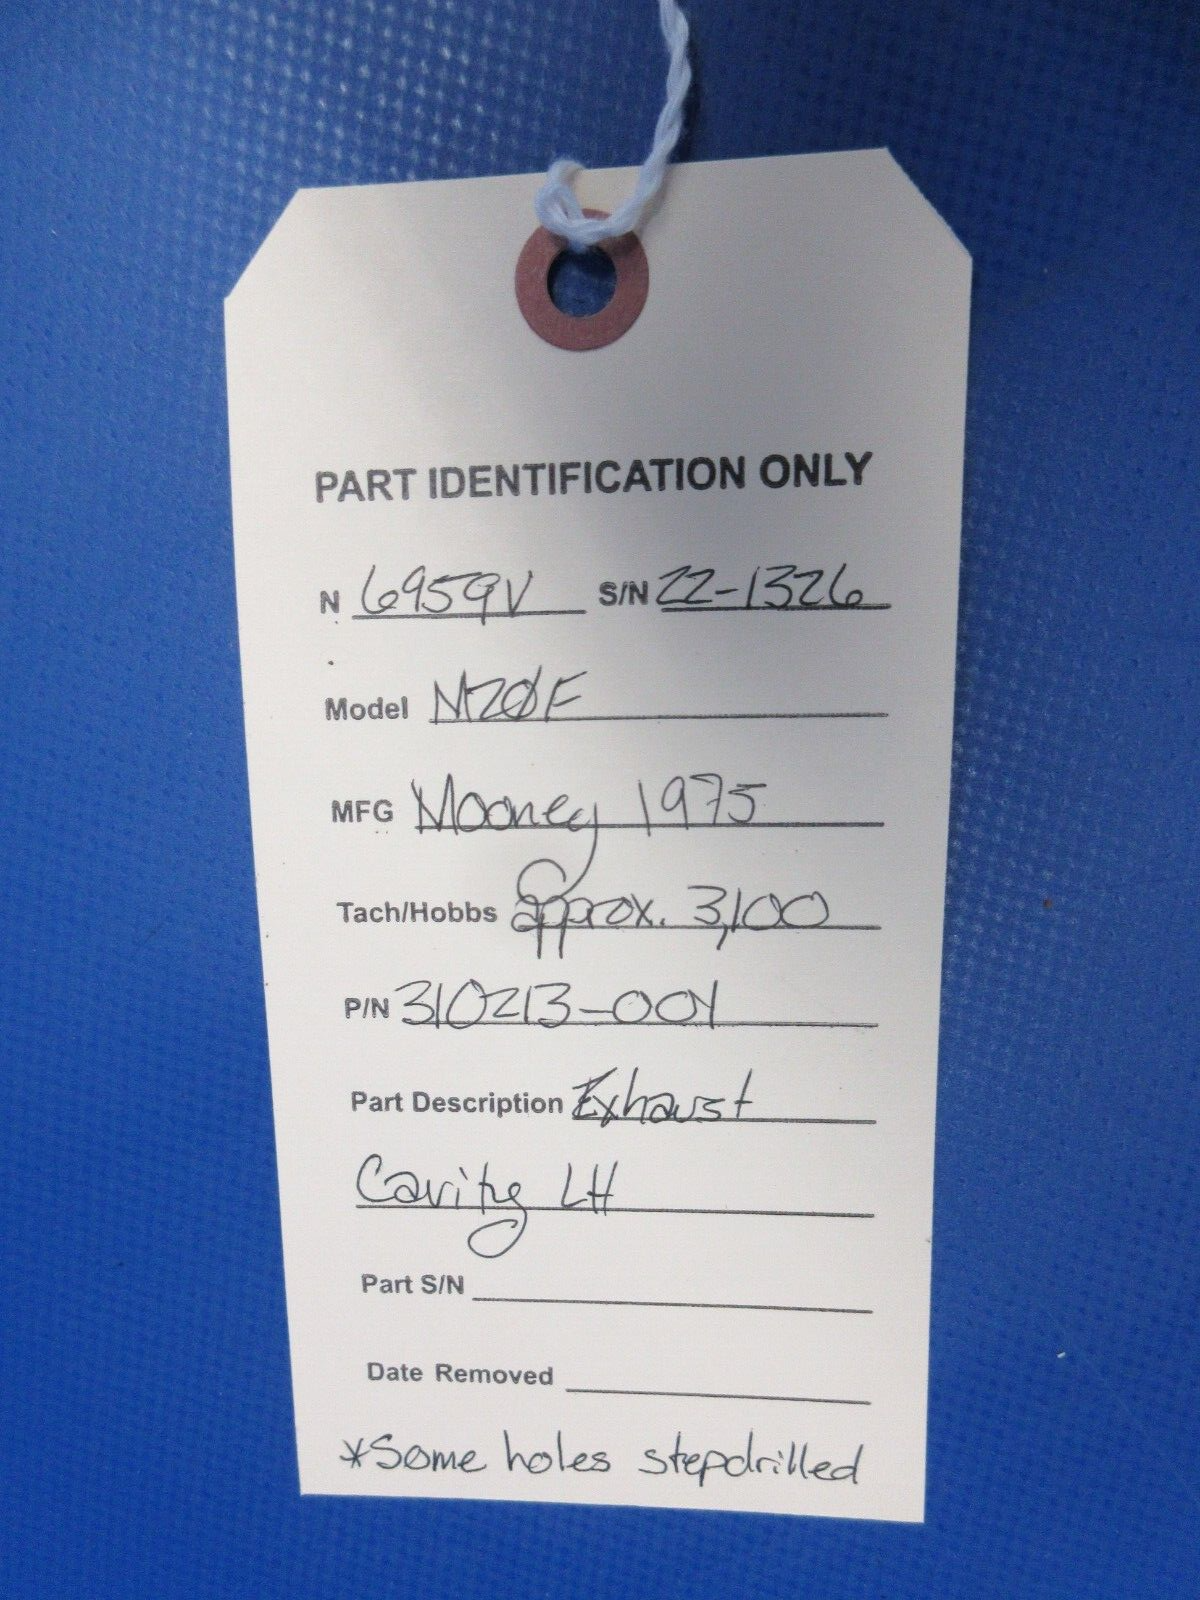 PART IDENTIFICATION ONLY
N 6959V S/N 22-1326
Model M20F
MFG Mooney 1975
Tach/Hobbs approx. 3,100
P/N 310213-001
Part Description Exhaust
Cavity LH
Part S/N
Date Removed
*Some holes stepdrilled